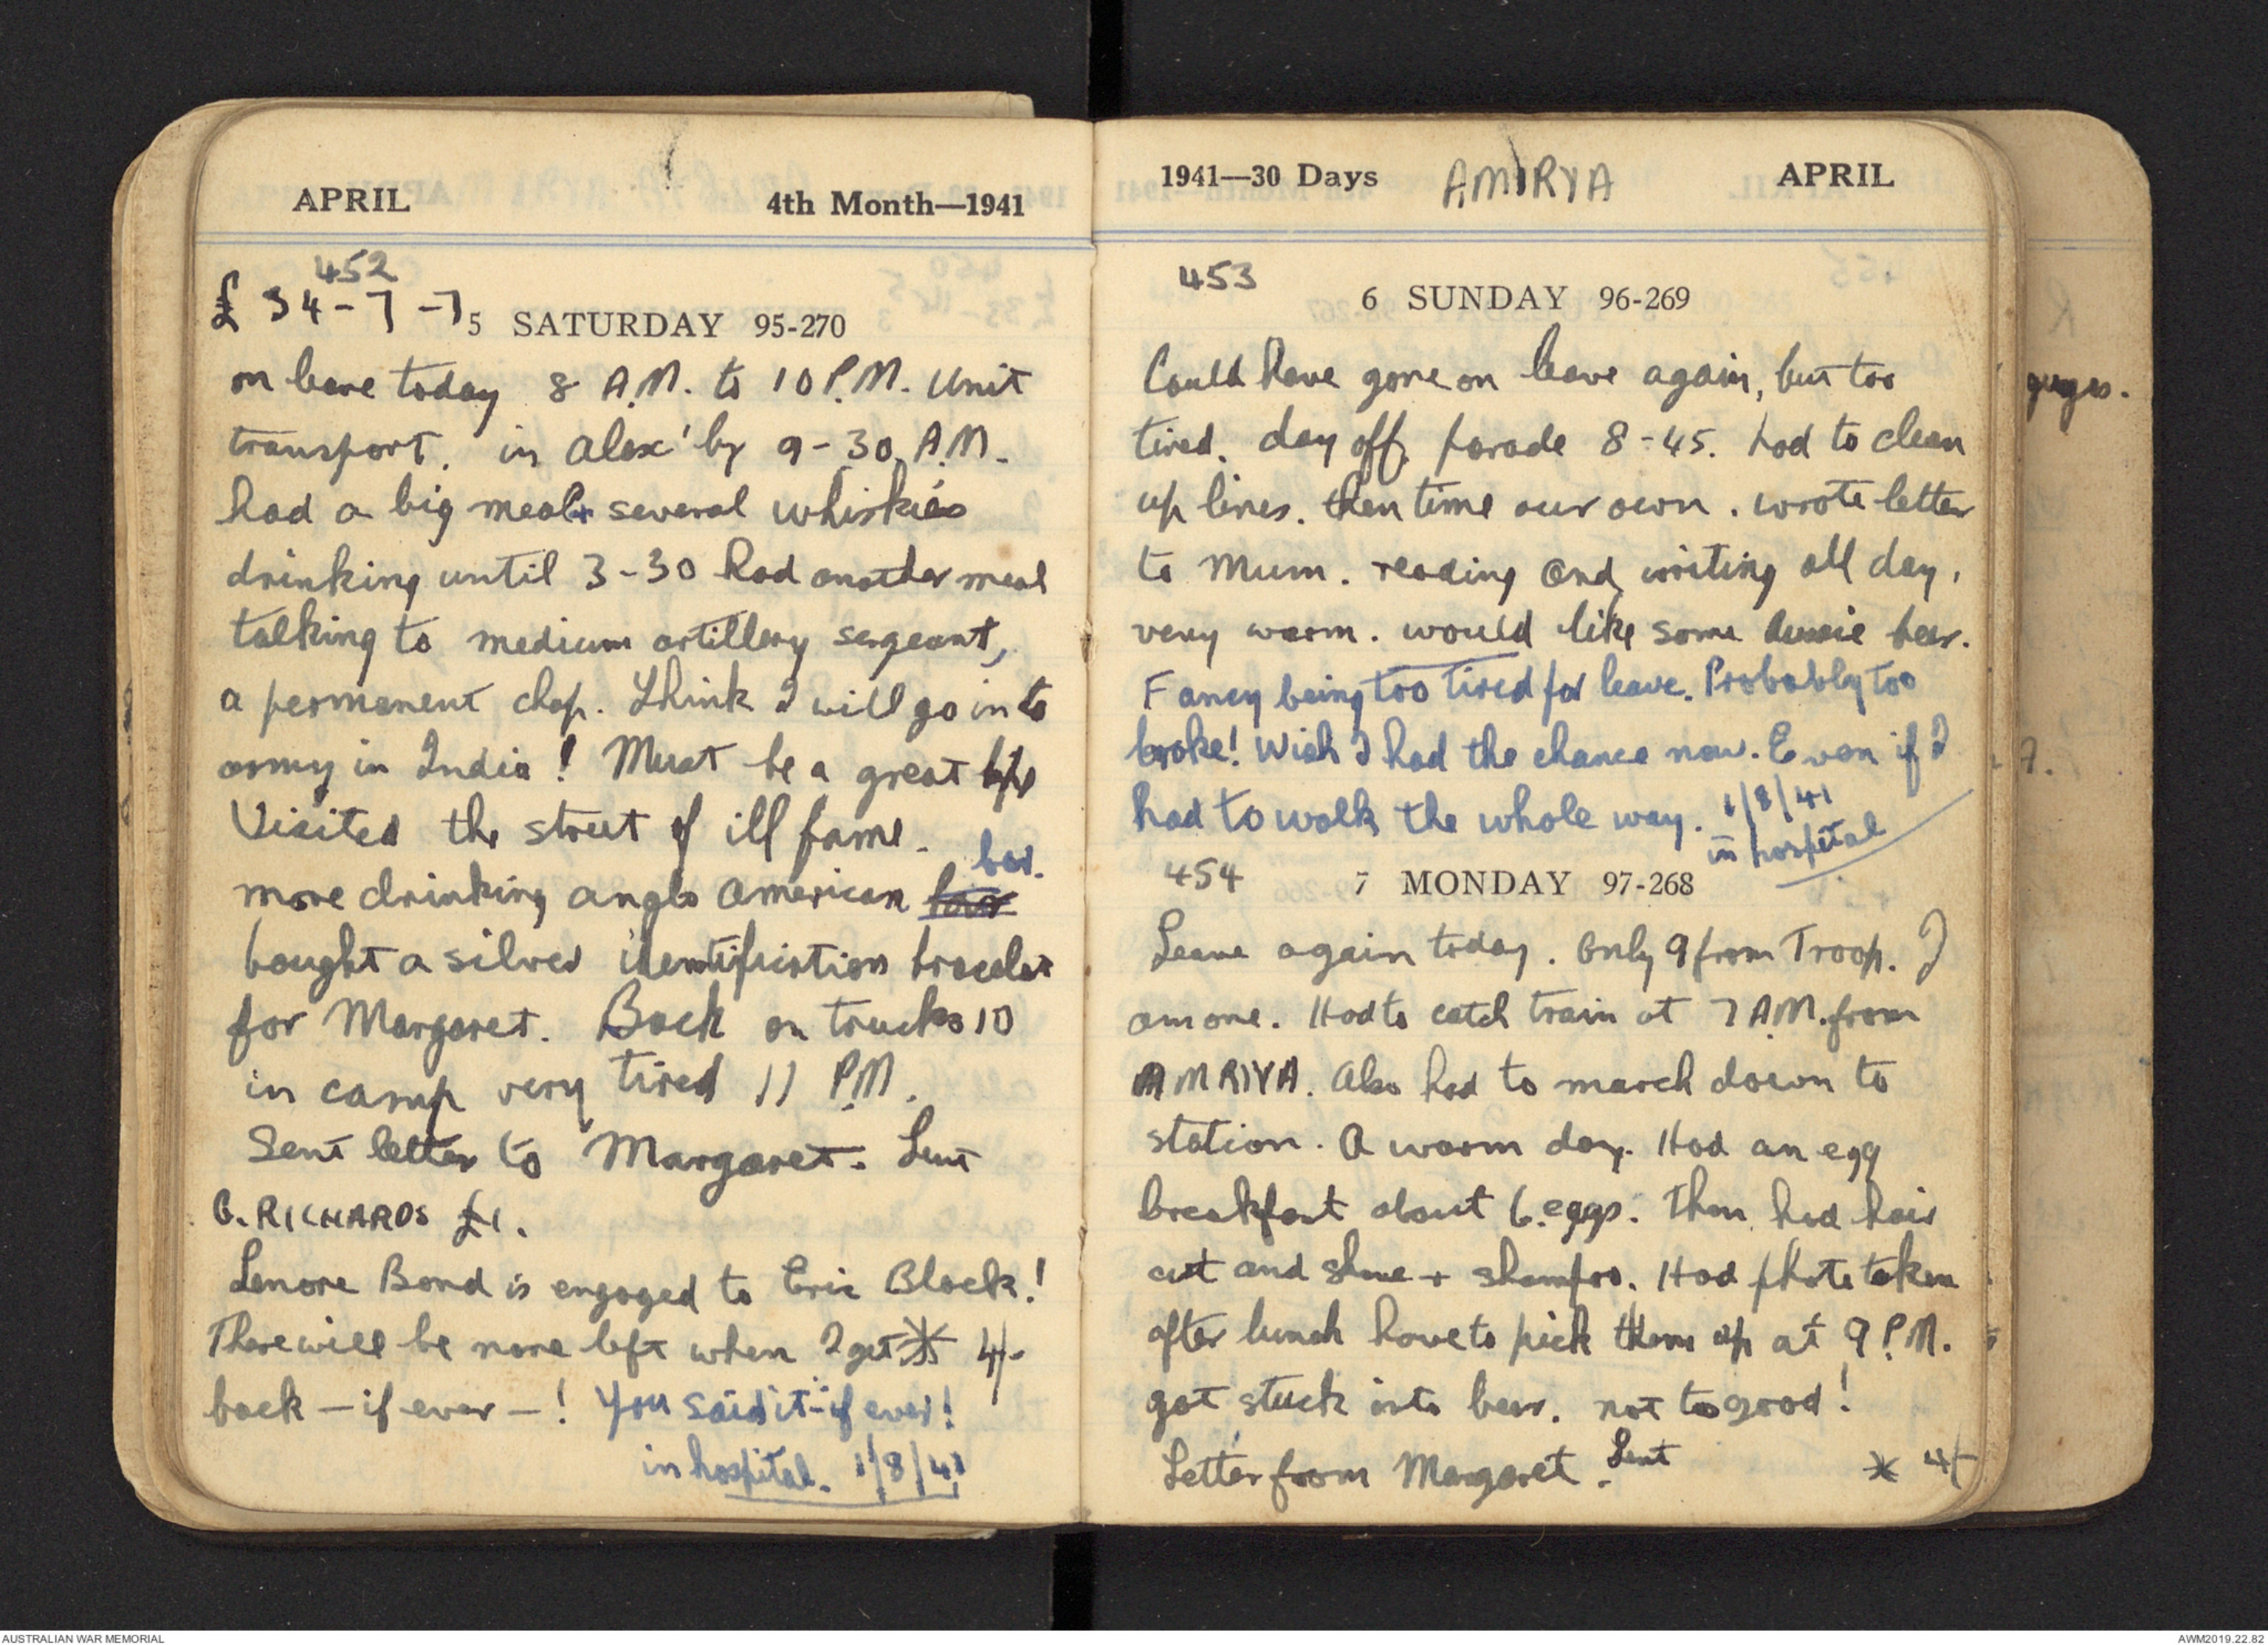 APRIL 4th Month—1941
452
£ 34-7-7
5 SATURDAY 95-270
on leave today 8 A.M. to 10 P.M. Unit
transport. in Alex' by 9-30 A.M.
had a big meal + several whiskies
drinking until 3-30 had another meal
talking to medium artillery sergeant,
a permanent chap. Think I will go into
army in India! Must be a great life
Visited the street of ill fame.
bar.
more drinking anglo American
bought a silver identification bracelet
for Margaret. Back on trucks 10
in camp very tired 11 P.M.
Sent letter to Margaret. Lent
G. RICHARDS £1.
Lenore Bond is engaged to Eric Black!
There will be none left when I get * 4/-
back — if ever —! You said it - if ever!
in hospital. 1/8/41
1941—30 Days AMIRYA APRIL
453
6 SUNDAY 96-269
Could have gone on leave again, but too
tired. day off. parade 8-45. had to clean
up lines. then time our own. wrote letter
to Mum. reading and writing all day.
very warm. would like some Aussie beer.
Fancy being too tired for leave. Probably too
broke! Wish I had the chance now. Even if I
had to walk the whole way. 1/8/41
in hospital
454
7 MONDAY 97-268
Leave again today. Only 9 from Troop. I
am one. Had to catch train at 7 A.M. from
AMRIYA. Also had to march down to
station. A warm day. Had an egg
breakfast about 6 eggs. Then had hair
cut and shave + shampoo. Had photo taken
after lunch have to pick them up at 9 P.M.
got stuck into beer. not too good!
Letter from Margaret. Sent
* 4/-
AUSTRALIAN WAR MEMORIAL
AWM2019.22.82